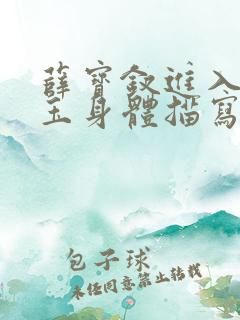 薛寶釵進入
玉身體描寫
包子球
未經同意禁止轉載